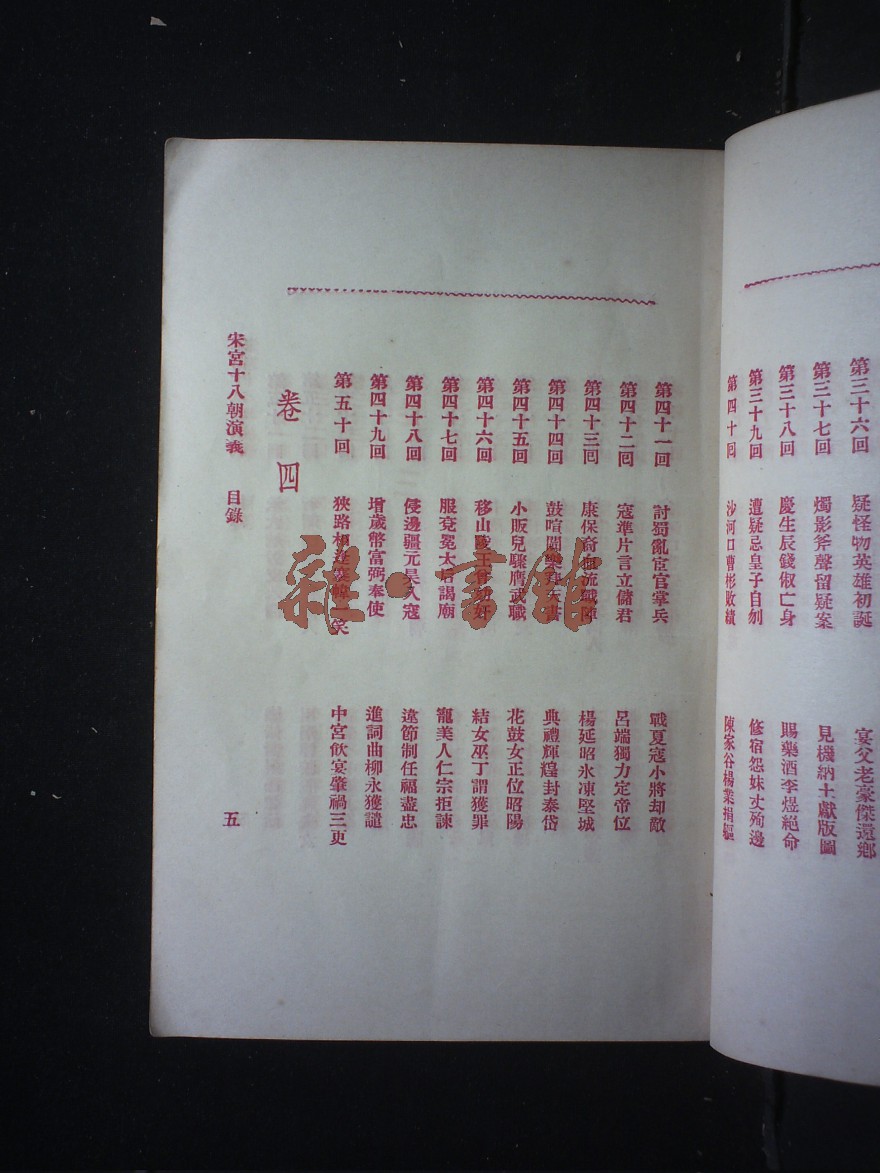 第三十六回 疑怪物英雄初誕 宴父老豪傑還鄉
第三十七回 燭影斧聲留疑案 見機納土獻版圖
第三十八回 慶生辰錢俶亡身 賜藥酒李煜絕命
第三十九回 遭疑忌皇子自刎 修宿怨妹丈殉邊
第四十回 沙河口曹彬敗績 陳家谷楊業捐軀
第四十一回 討蜀亂宦官掌兵 戰夏寇小將却敵
第四十二回 寇準片言立儲君 呂端獨力定帝位
第四十三回 康保裔血流戰陣 楊延昭氷凍堅城
第四十四回 鼓喧闐樂 天書 典禮輝煌封泰岱
第四十五回 小販兒驟膺武職 花鼓女正位昭陽
第四十六回 移山陵王曾劾奸 結女巫丁謂獲罪
第四十七回 服袞冕太后謁廟 寵美人仁宗拒諫
第四十八回 侵邊疆元昊入寇 違節制任福盡忠
第四十九回 增歲幣富弼奉使 進詞曲柳永獲譴
第五十回 狹路相逢褰幃一笑 中宮飲宴肇禍三更
卷四
宋宮十八朝演義 目錄 五
雜·書館